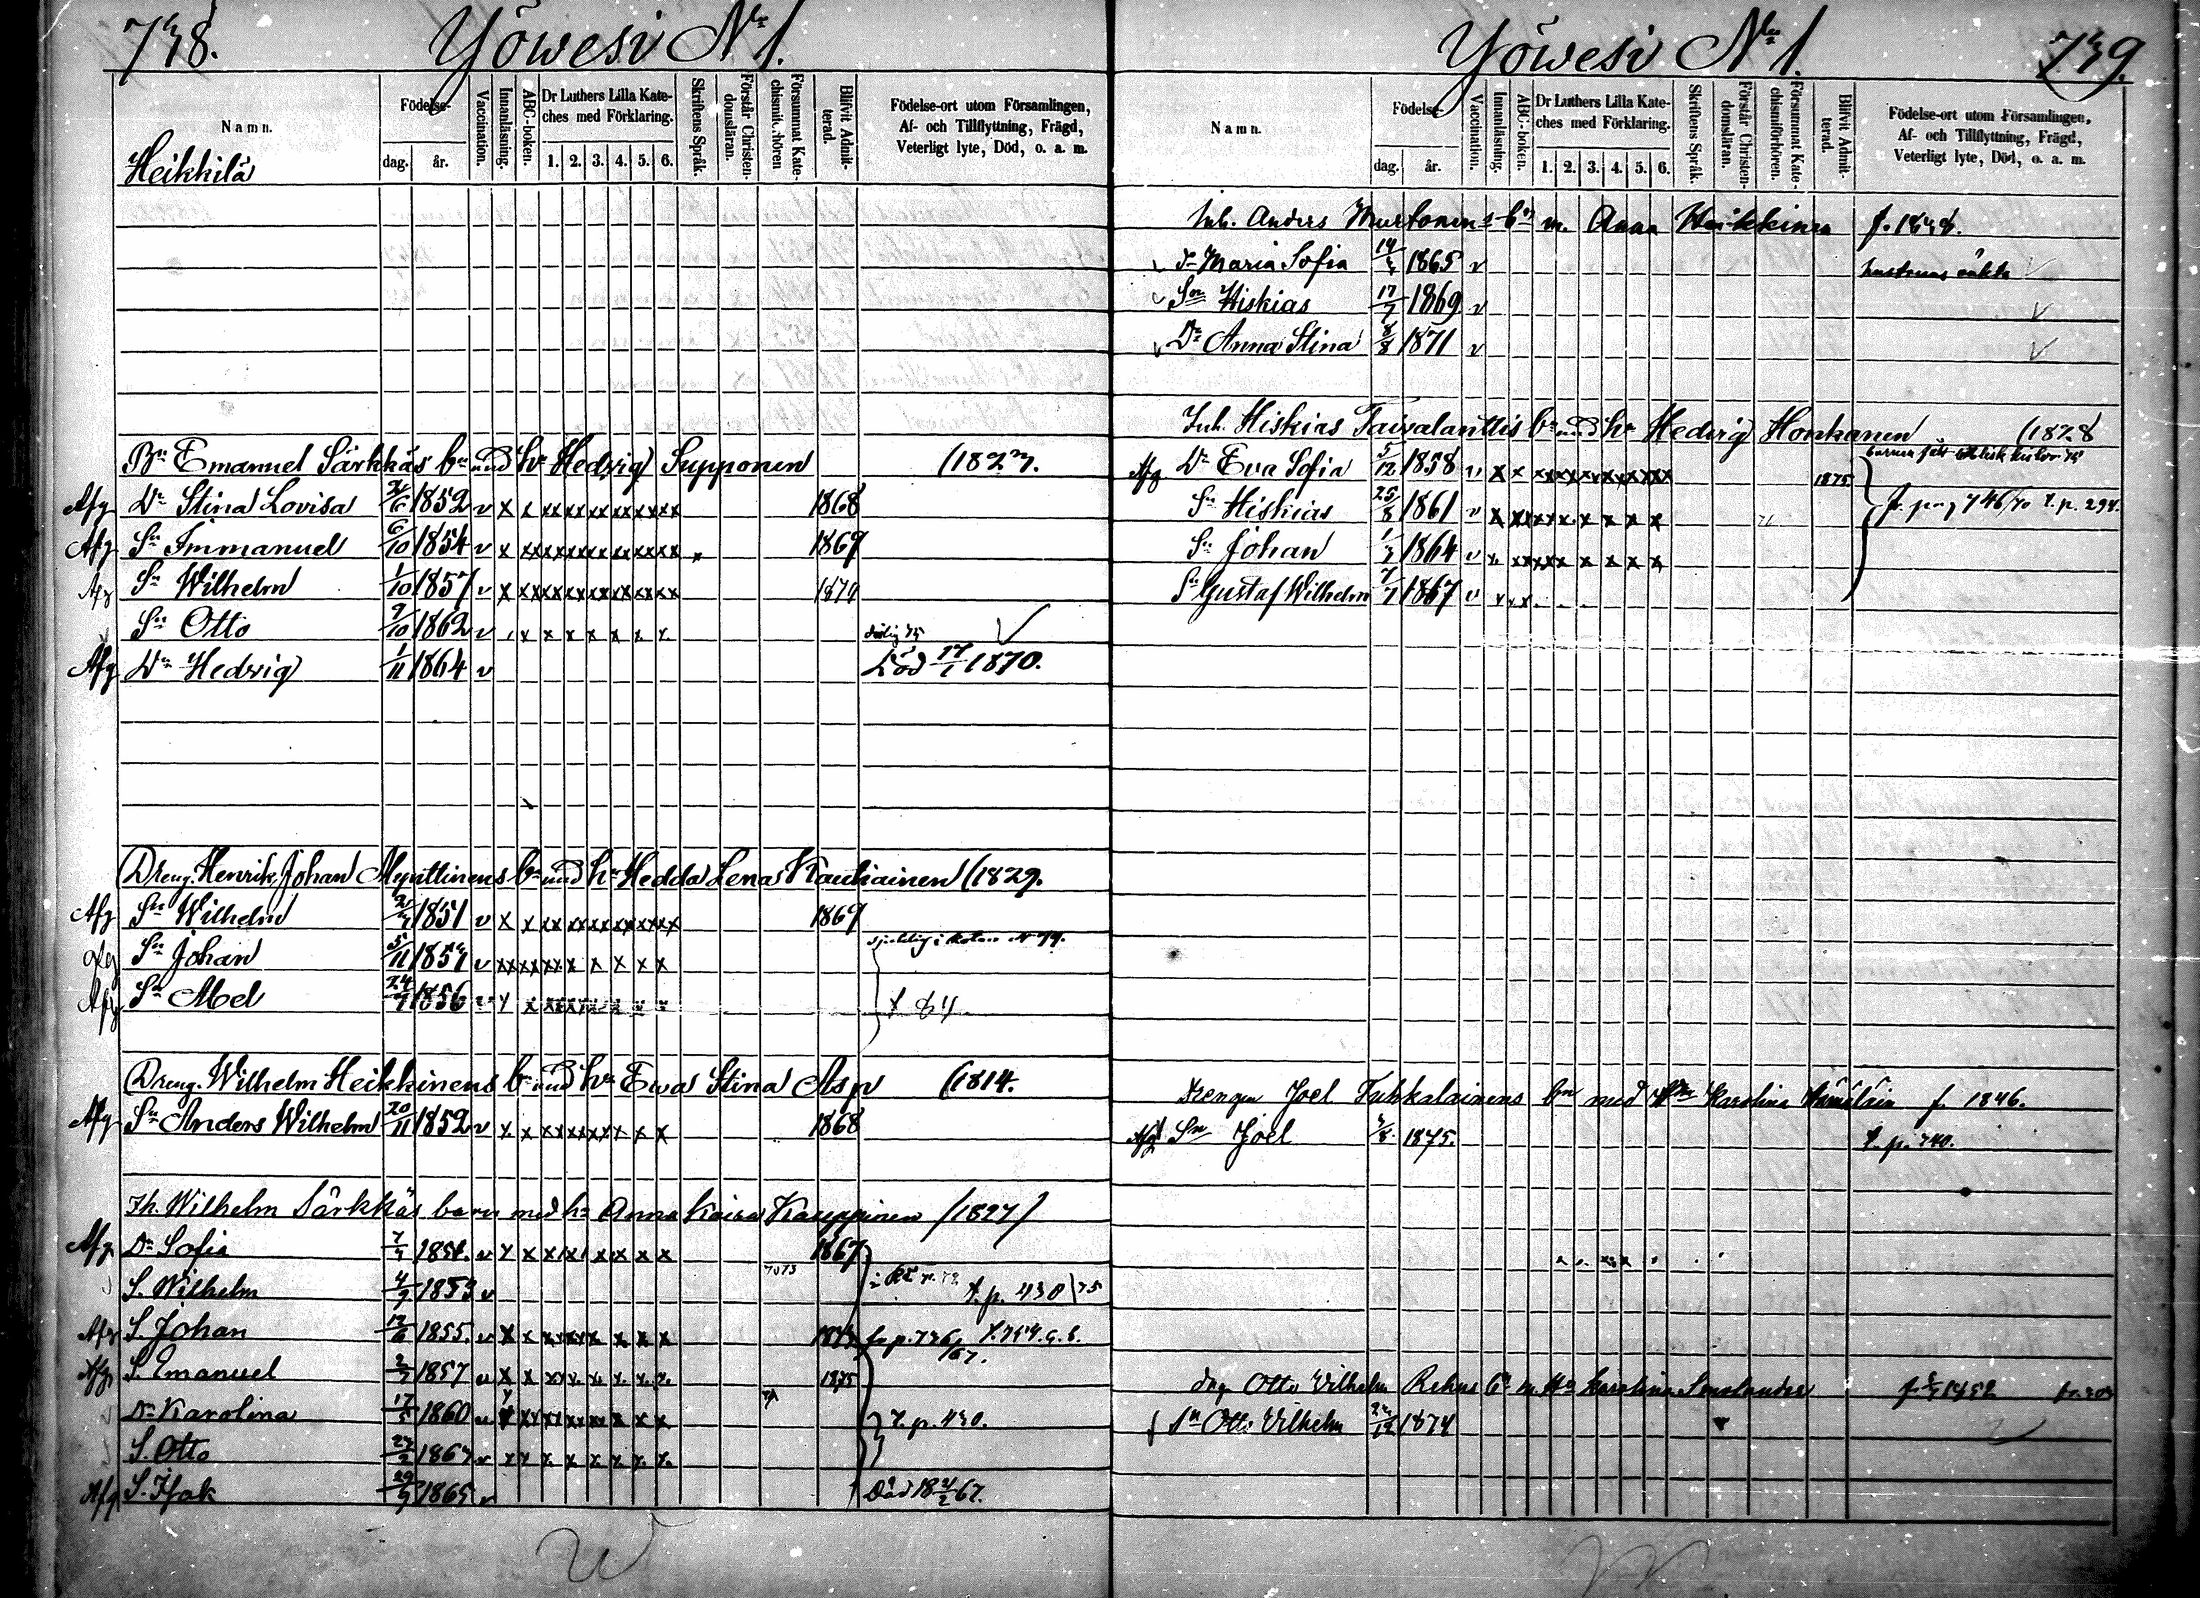 738. Yöwesi No 1.
Namn.
Heikkilä
Födelse-
dag. år.
Vaccination.
Innanläsning.
ABC-boken.
Dr Luthers Lilla Kate-
ches med Förklaring.
1. 2. 3. 4. 5. 6.
Skriftens Språk.
Förstår Christen-
domsläran.
Försummat Kate-
chismiförhören
Blifvit Admit-
terad.
Födelse-ort utom Församlingen,
Af- och Tillflyttning, Frägd,
Veterligt lyte, Död, o. a. m.
Bn Emanuel Särkkäs bn med hu Hedvig Supponen (1823.
Afg Dr Stina Lovisa 1852 v 1868
Afg Sn Immanuel 6/10 1854 v 1869
Afg Sn Wilhelm 1/10 1857 v 1874
Sn Otto 9/10 1862 v
Afg Dr Hedvig 1/11 1864 v Död 17/1 1870.
Dreng. Henrik Johan Mynttinens bn med hu Hedda Lena Kautiainen (1829.
Afg Sn Wilhelm 1851 v 1869
Sn Johan 5/11 1854 v
Afg Sn Abel 24/9 1856
Dreng. Wilhelm Heikkinens bn med hu Ewa Stina Asp (1814.
Afg Sn Anders Wilhelm 20/11 1852 v 1868
Ih. Wilhelm Särkkäs barn med hu Anna Kaisa Kauppinen (1827)
Afg Dr Sofia 1851. v 1867
S. Wilhelm 4/9 1853 v t. p. 430/75
Afg S. Johan 12/6 1855. v
Afg S. Emanuel 1857 v 1875
Dr Karolina 17/5 1860 v t. p. 430.
S. Otto 1863 v
Afg S. Isak 29/9 1865 v Död 18 4/2 67.
Yöwesi No 1. 739.
Namn.
Födelse
dag. år.
Vaccination.
Innanläsning.
ABC-boken.
Dr Luthers Lilla Kate-
ches med Förklaring.
1. 2. 3. 4. 5. 6.
Skriftens Språk.
Förstår Christen-
domsläran.
Försummat Kate-
chismiförhören.
Blifvit Admit-
terad.
Födelse-ort utom Församlingen,
Af- och Tillflyttning, Frägd,
Veterligt lyte, Död, o. a. m.
Inh. Anders Murtonens bn m. Anna Heikkinen f. 1838.
Maria Sofia 1865 v hustruns oäkta
Sn Hiskias 17/7 1869 v
Dr Anna Stina 8/8 1871 v
Inh. Hiskias Taivalanttis bn med hu Hedvig Honkanen (1828
Afg. Dr Eva Sofia 5/12 1858 v 1875
Sn Hiskias 25/8 1861 v fr. pag 746/70 t. p. 294.
Sn Johan 1864 v
Sn Gustaf Wilhelm 1867 v
Drengen Joel Tuhkalainens bn med hu Karolina Hämäläin f. 1846.
Afg Sn Joel 1875. t. p. 740.
Otto Vilhelm
Sn Otto Vilhelm 1874